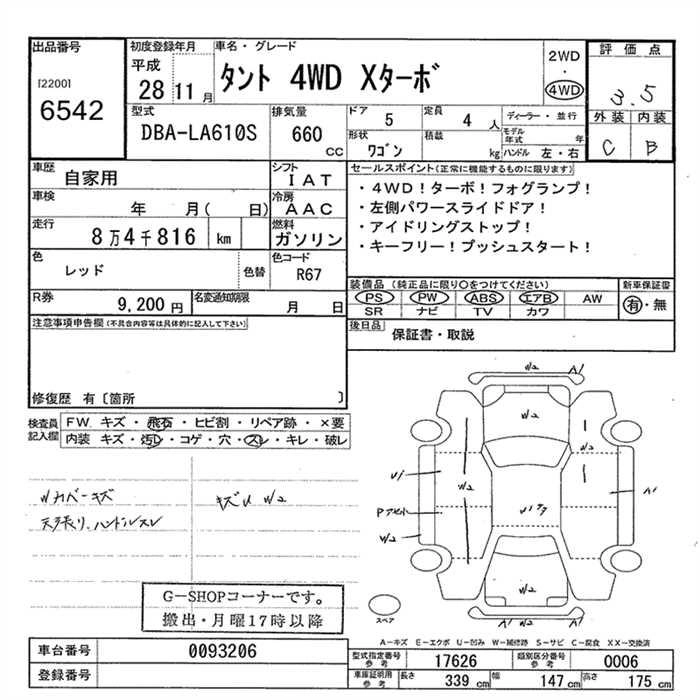 出品番号
[2200]
6542
初度登録年月
平成
28 11 月
車名・グレード
タント 4WD Xターボ
2WD
・
4WD
評価点
3.5
外装 内装
C B
型式
DBA-LA610S
排気量
660 CC
ドア 5
定員 4 人
ディーラー・並行
形状 ワゴン
積載 kg
モデル年式 年
ハンドル 左・右
車歴 自家用
シフト IAT
車検 年 月( 日)
冷房 AAC
走行 8万4千816 km
燃料 ガソリン
色 レッド 色替
色コード R67
R券 9,200 円
名変通知期限 月 日
セールスポイント(正常に機能するものに限ります)
・4WD!ターボ!フォグランプ!
・左側パワースライドドア!
・アイドリングストップ!
・キーフリー!プッシュスタート!
装備品(純正品に限り○をつけてください)
PS PW ABS エアB AW
SR ナビ TV カワ
新車保証書
有・無
後日品 保証書・取説
注意事項申告欄(不具合内容等は具体的に記入して下さい)
修復歴 有〔箇所 〕
検査員記入欄
FW キズ・飛石・ヒビ割・リペア跡・×要
内装 キズ・汚レ・コゲ・穴・スレ・キレ・破レ
カバーキズ
天張り、ハンドルスレ
キズU W2
W2 A1
W2
U1
W2 W2
Pアせル
W2
A1
W2
A1 W2 A1
スペア
G-SHOPコーナーです。
搬出・月曜17時以降
A-キズ E-エクボ U-凹み W-補修跡 S-サビ C-腐食 XX-交換済
車台番号 0093206
登録番号
型式指定番号 参考 17626
類別区分番号 参考 0006
車庫証明用 参考 長さ 339 cm 幅 147 cm 高さ 175 cm